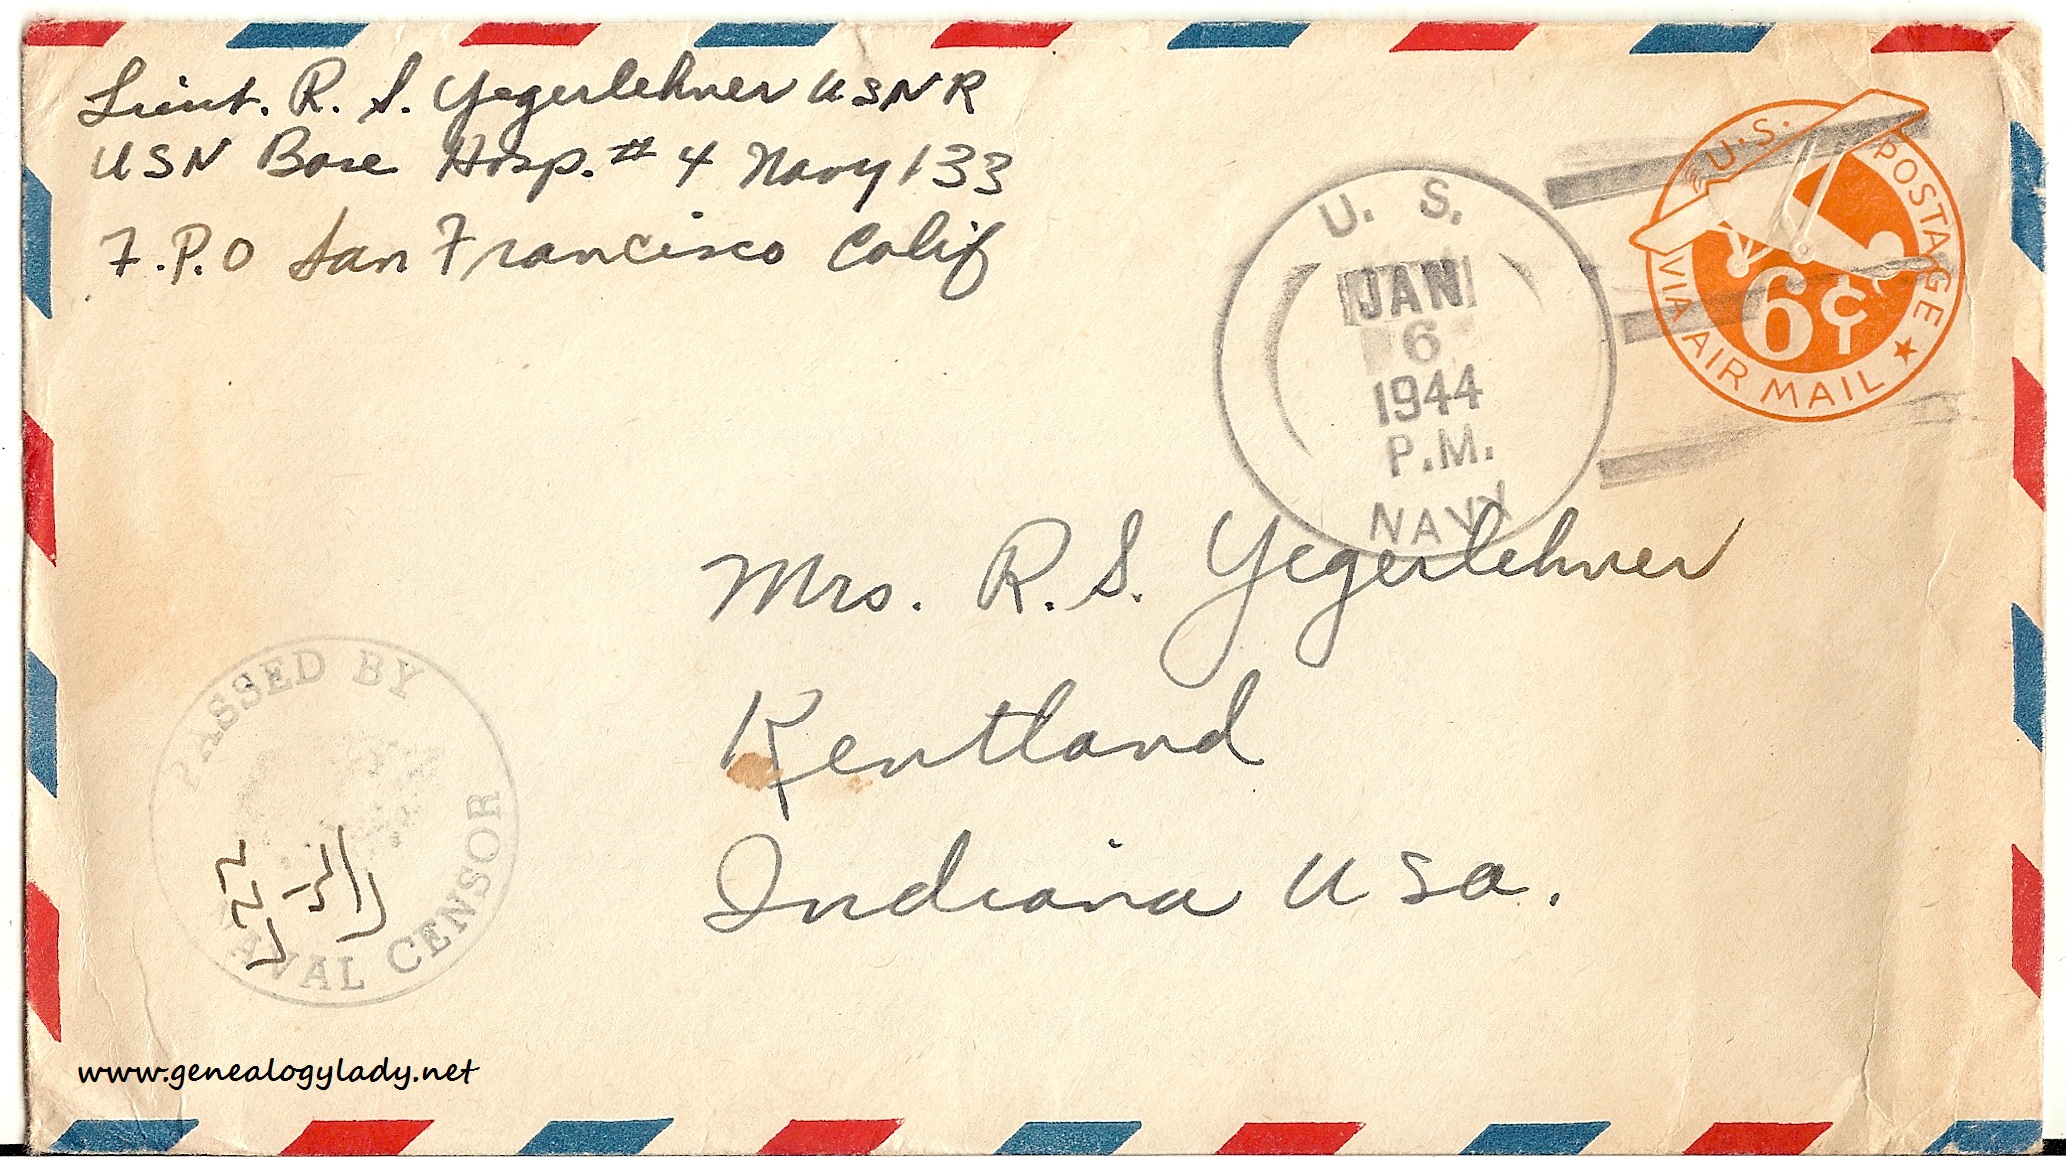 Lieut. R. S. Yegerlehner USNR
USN Base Hosp. # 4 Navy 133
F.P.O San Francisco Calif
U. S.
JAN
6
1944
P.M.
NAVY
U.S. POSTAGE
6¢
VIA AIR MAIL
Mrs. R. S. Yegerlehner
Kentland
Indiana USa.
PASSED BY
NAVAL CENSOR
www.genealogylady.net